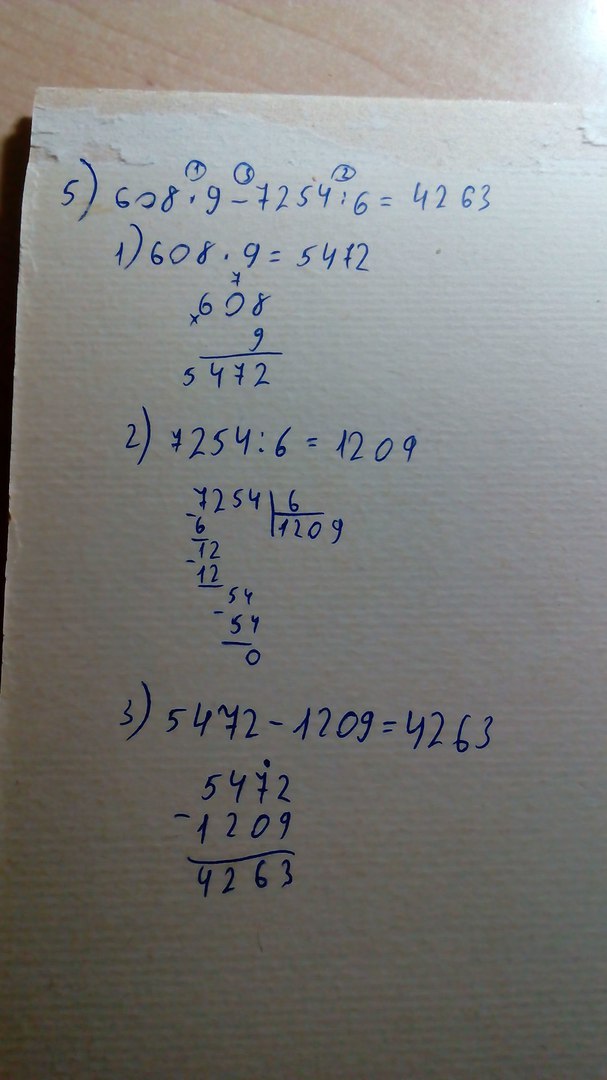 ① ③ ②
5) 608·9-7254:6= 4263
1) 608·9= 5472
7
×608
9
5472
2) 7254:6= 1209
-7254|6
6 1209
-12
12
54
-54
0
3) 5472-1209=4263
5472
-1209
4263